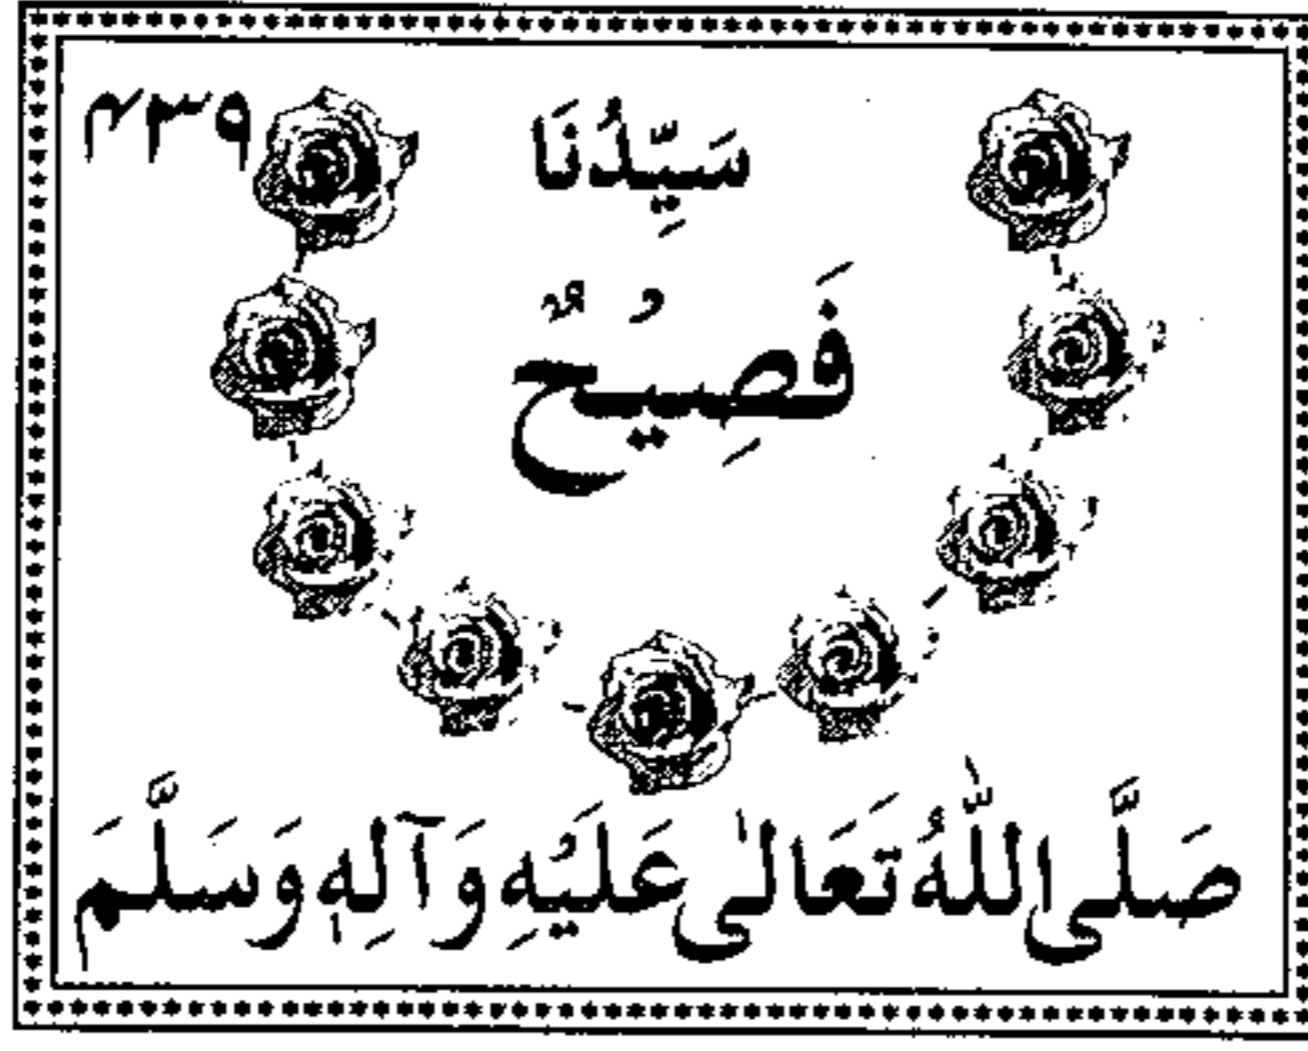 ۴۳۹
سَيِّدُنَا
فَصِيْحٌ
صَلَّى اللّٰهُ تَعَالٰى عَلَيْهِ وَآلِهٖ وَسَلَّمَ